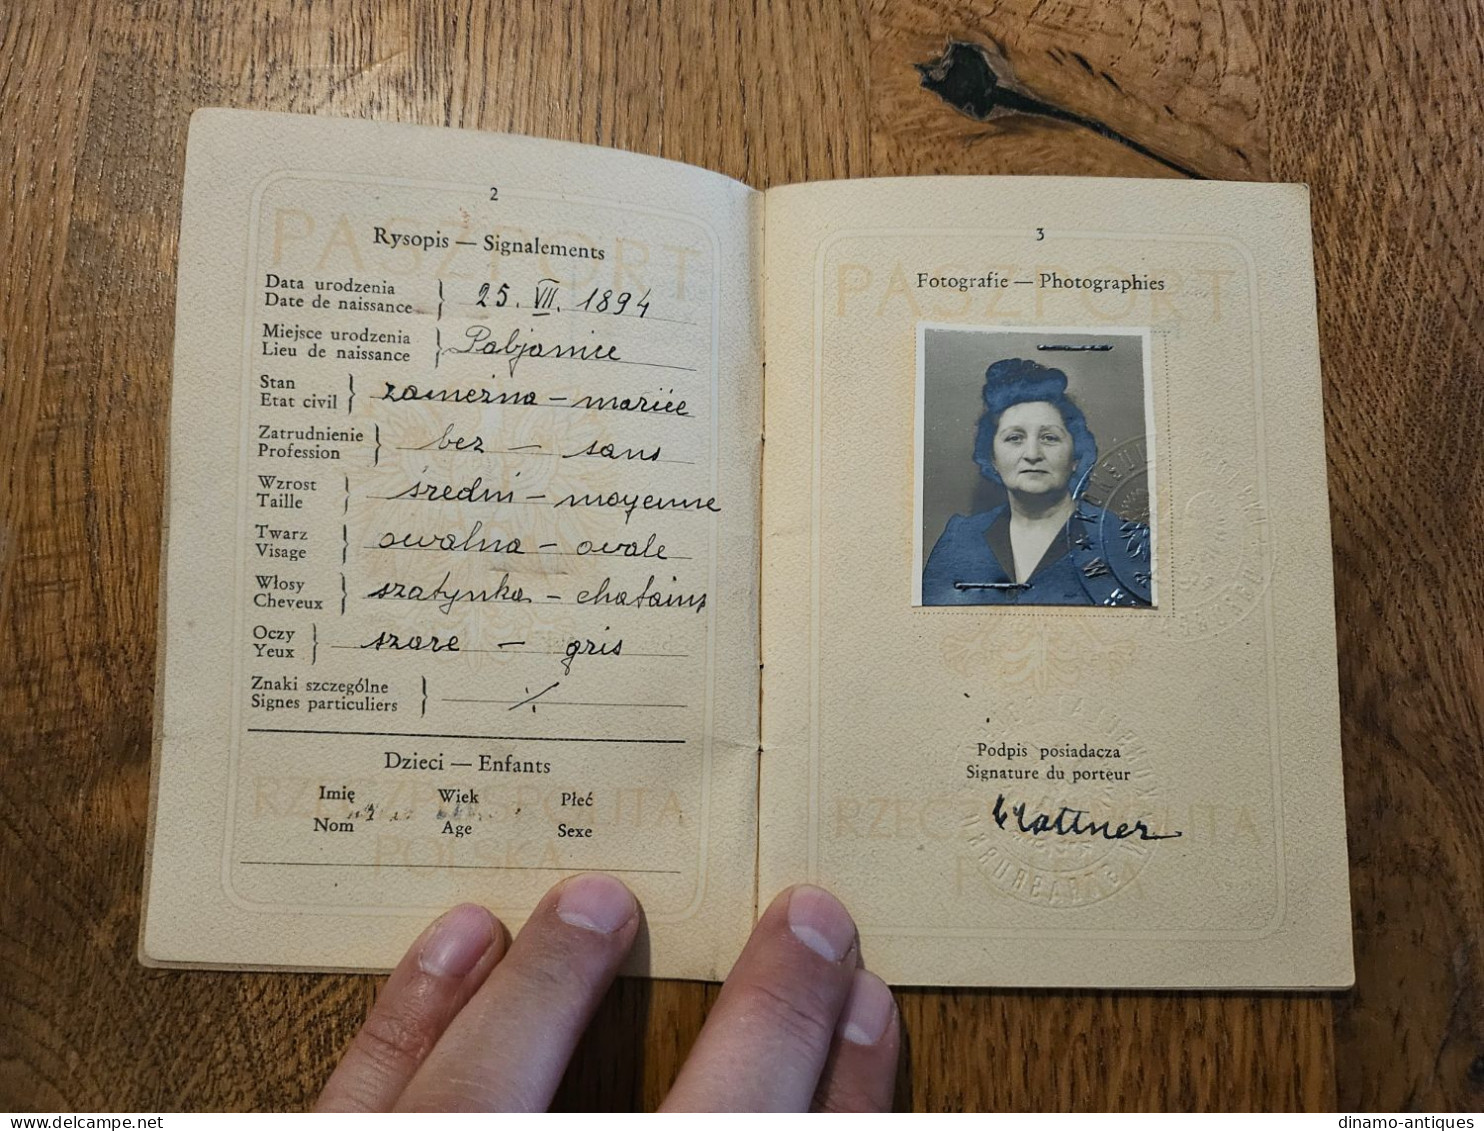 2
Rysopis — Signalements
Data urodzenia
Date de naissance
25. VII. 1894
Miejsce urodzenia
Lieu de naissance
Pabjanice
Stan
Etat civil
zamężna – mariée
Zatrudnienie
Profession
bez – sans
Wzrost
Taille
średni – moyenne
Twarz
Visage
owalna – ovale
Włosy
Cheveux
szatynka – chatains
Oczy
Yeux
szare – gris
Znaki szczególne
Signes particuliers
Dzieci — Enfants
Imię Wiek Płeć
Nom Age Sexe
PASZPORT
RZECZPOSPOLITA
POLSKA
3
Fotografie — Photographies
Podpis posiadacza
Signature du porteur
PASZPORT
RZECZPOSPOLITA
POLSKA
delcampe.net
dinamo-antiques